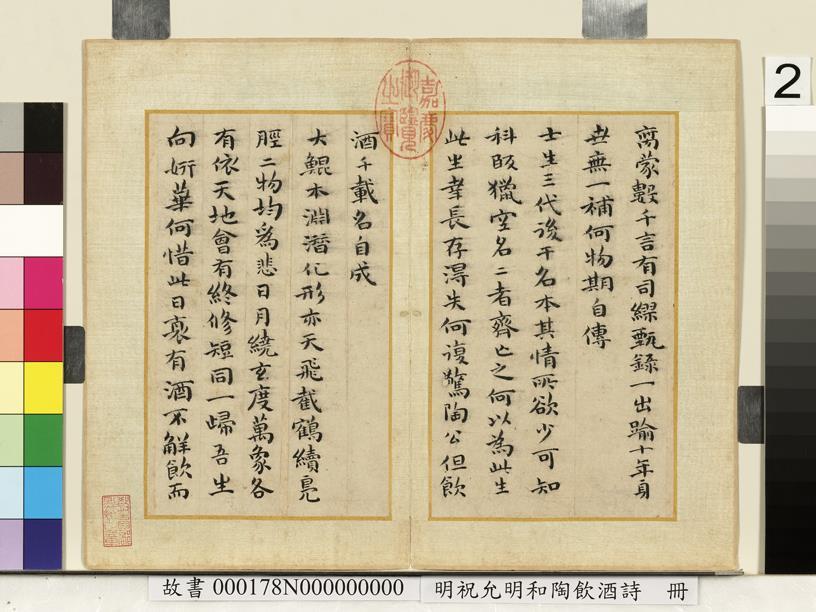 离蒙谿千言有司繆甄錄一出踰十年身
世無一補何物期自傳
士生三代後干名本其情所欲少可知
科跂獵空名二者齊亡之何以為此生
此生幸長存得失何復驚陶公但飲
酒千載名自成
大鯤本淵潛化形亦天飛截鶴續鳧
脛二物均為悲日月繞玄度萬象各
有依天地會有終修短同一歸吾生
向妍華何惜此日衰有酒不解飲而
嘉慶御覽之寶
2
故書 000178N000000000 明祝允明和陶飲酒詩 冊